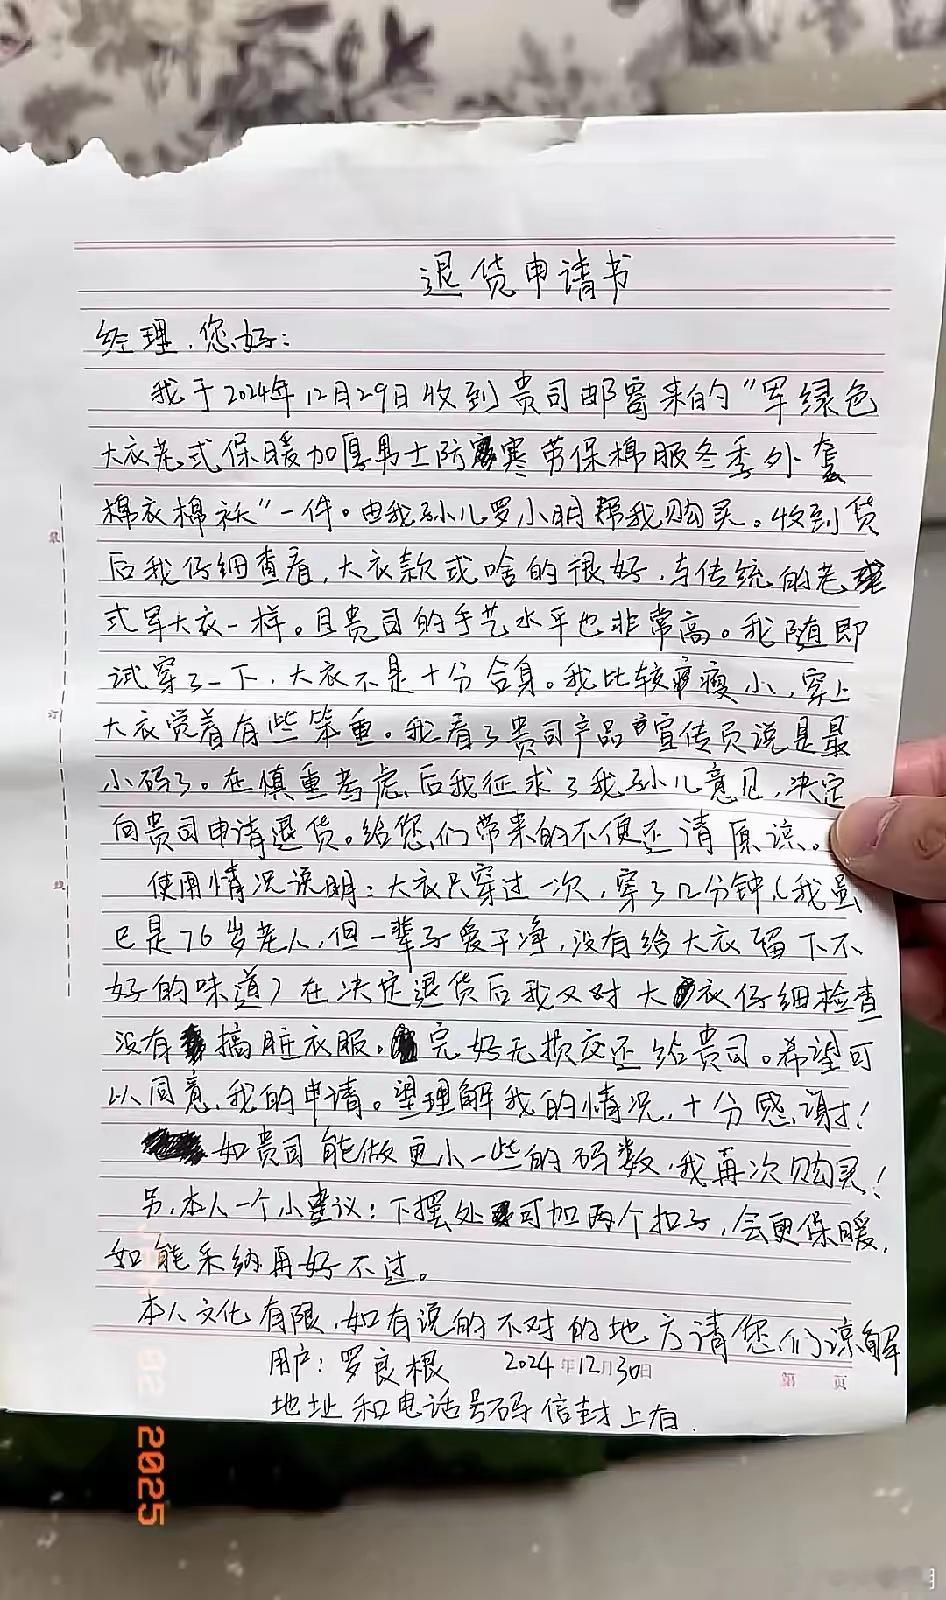 退货申请书
经理，您好：
我于2024年12月29日收到贵司邮寄来的"军绿色
大衣老式保暖加厚男士防寒劳保棉服冬季外套
棉衣棉袄"一件。由我孙儿罗小明帮我购买。收到货
后我仔细查看，大衣款式啥的很好，与传统的老
式军大衣一样。且贵司的手艺水平也非常高。我随即
试穿了一下，大衣不是十分合身。我比较瘦小，穿上
大衣觉着有些笨重。我看了贵司产品宣传页说是最
小码了。在慎重考虑后我征求了我孙儿意见，决定
向贵司申请退货。给您们带来的不便还请原谅。
使用情况说明：大衣只穿过一次，穿了几分钟（我虽
已是76岁老人，但一辈子爱干净，没有给大衣留下不
好的味道）在决定退货后我又对大衣仔细检查
没有搞脏衣服。完好无损交还给贵司。希望可
以同意我的申请。望理解我的情况，十分感谢！
如贵司能做更小一些的码数，我再次购买！
另，本人一个小建议：下摆处可加两个扣子，会更保暖，
如能采纳再好不过。
本人文化有限，如有说的不对的地方请您们谅解
用户：罗良根 2024年12月30日
第 页
地址和电话号码信封上有.
装
订
线
02 2025